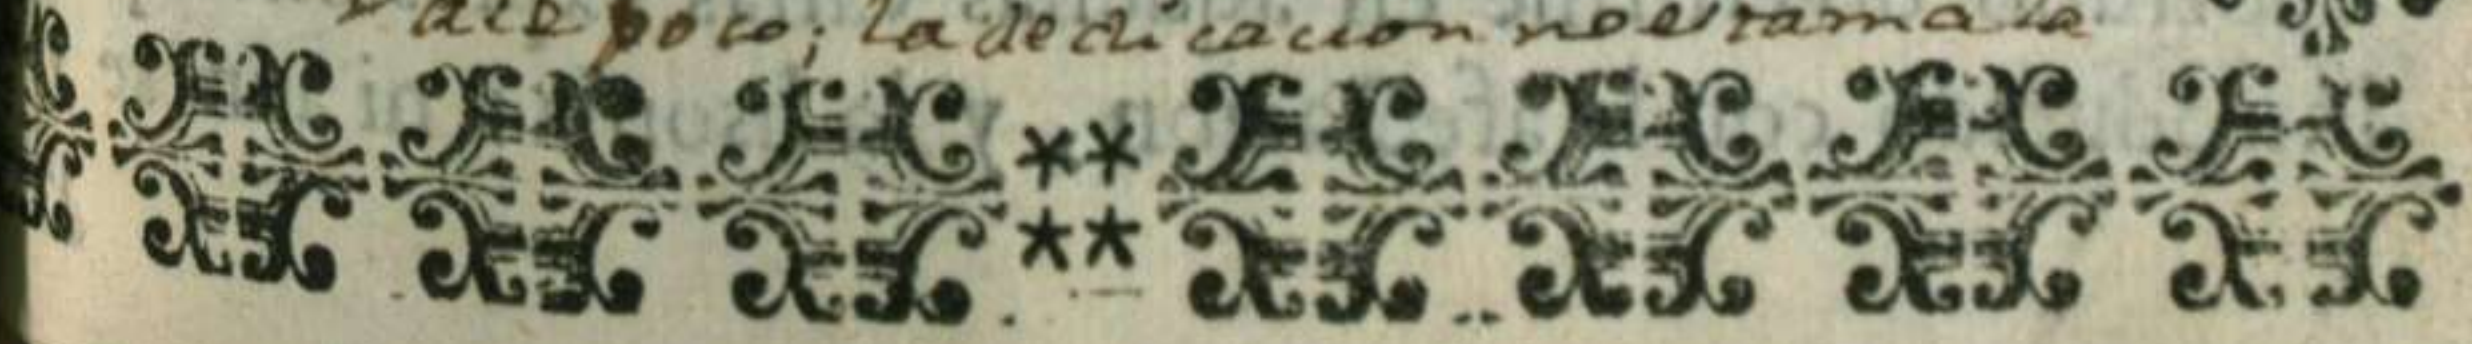 vale poco; la dedicacion no es tan mala